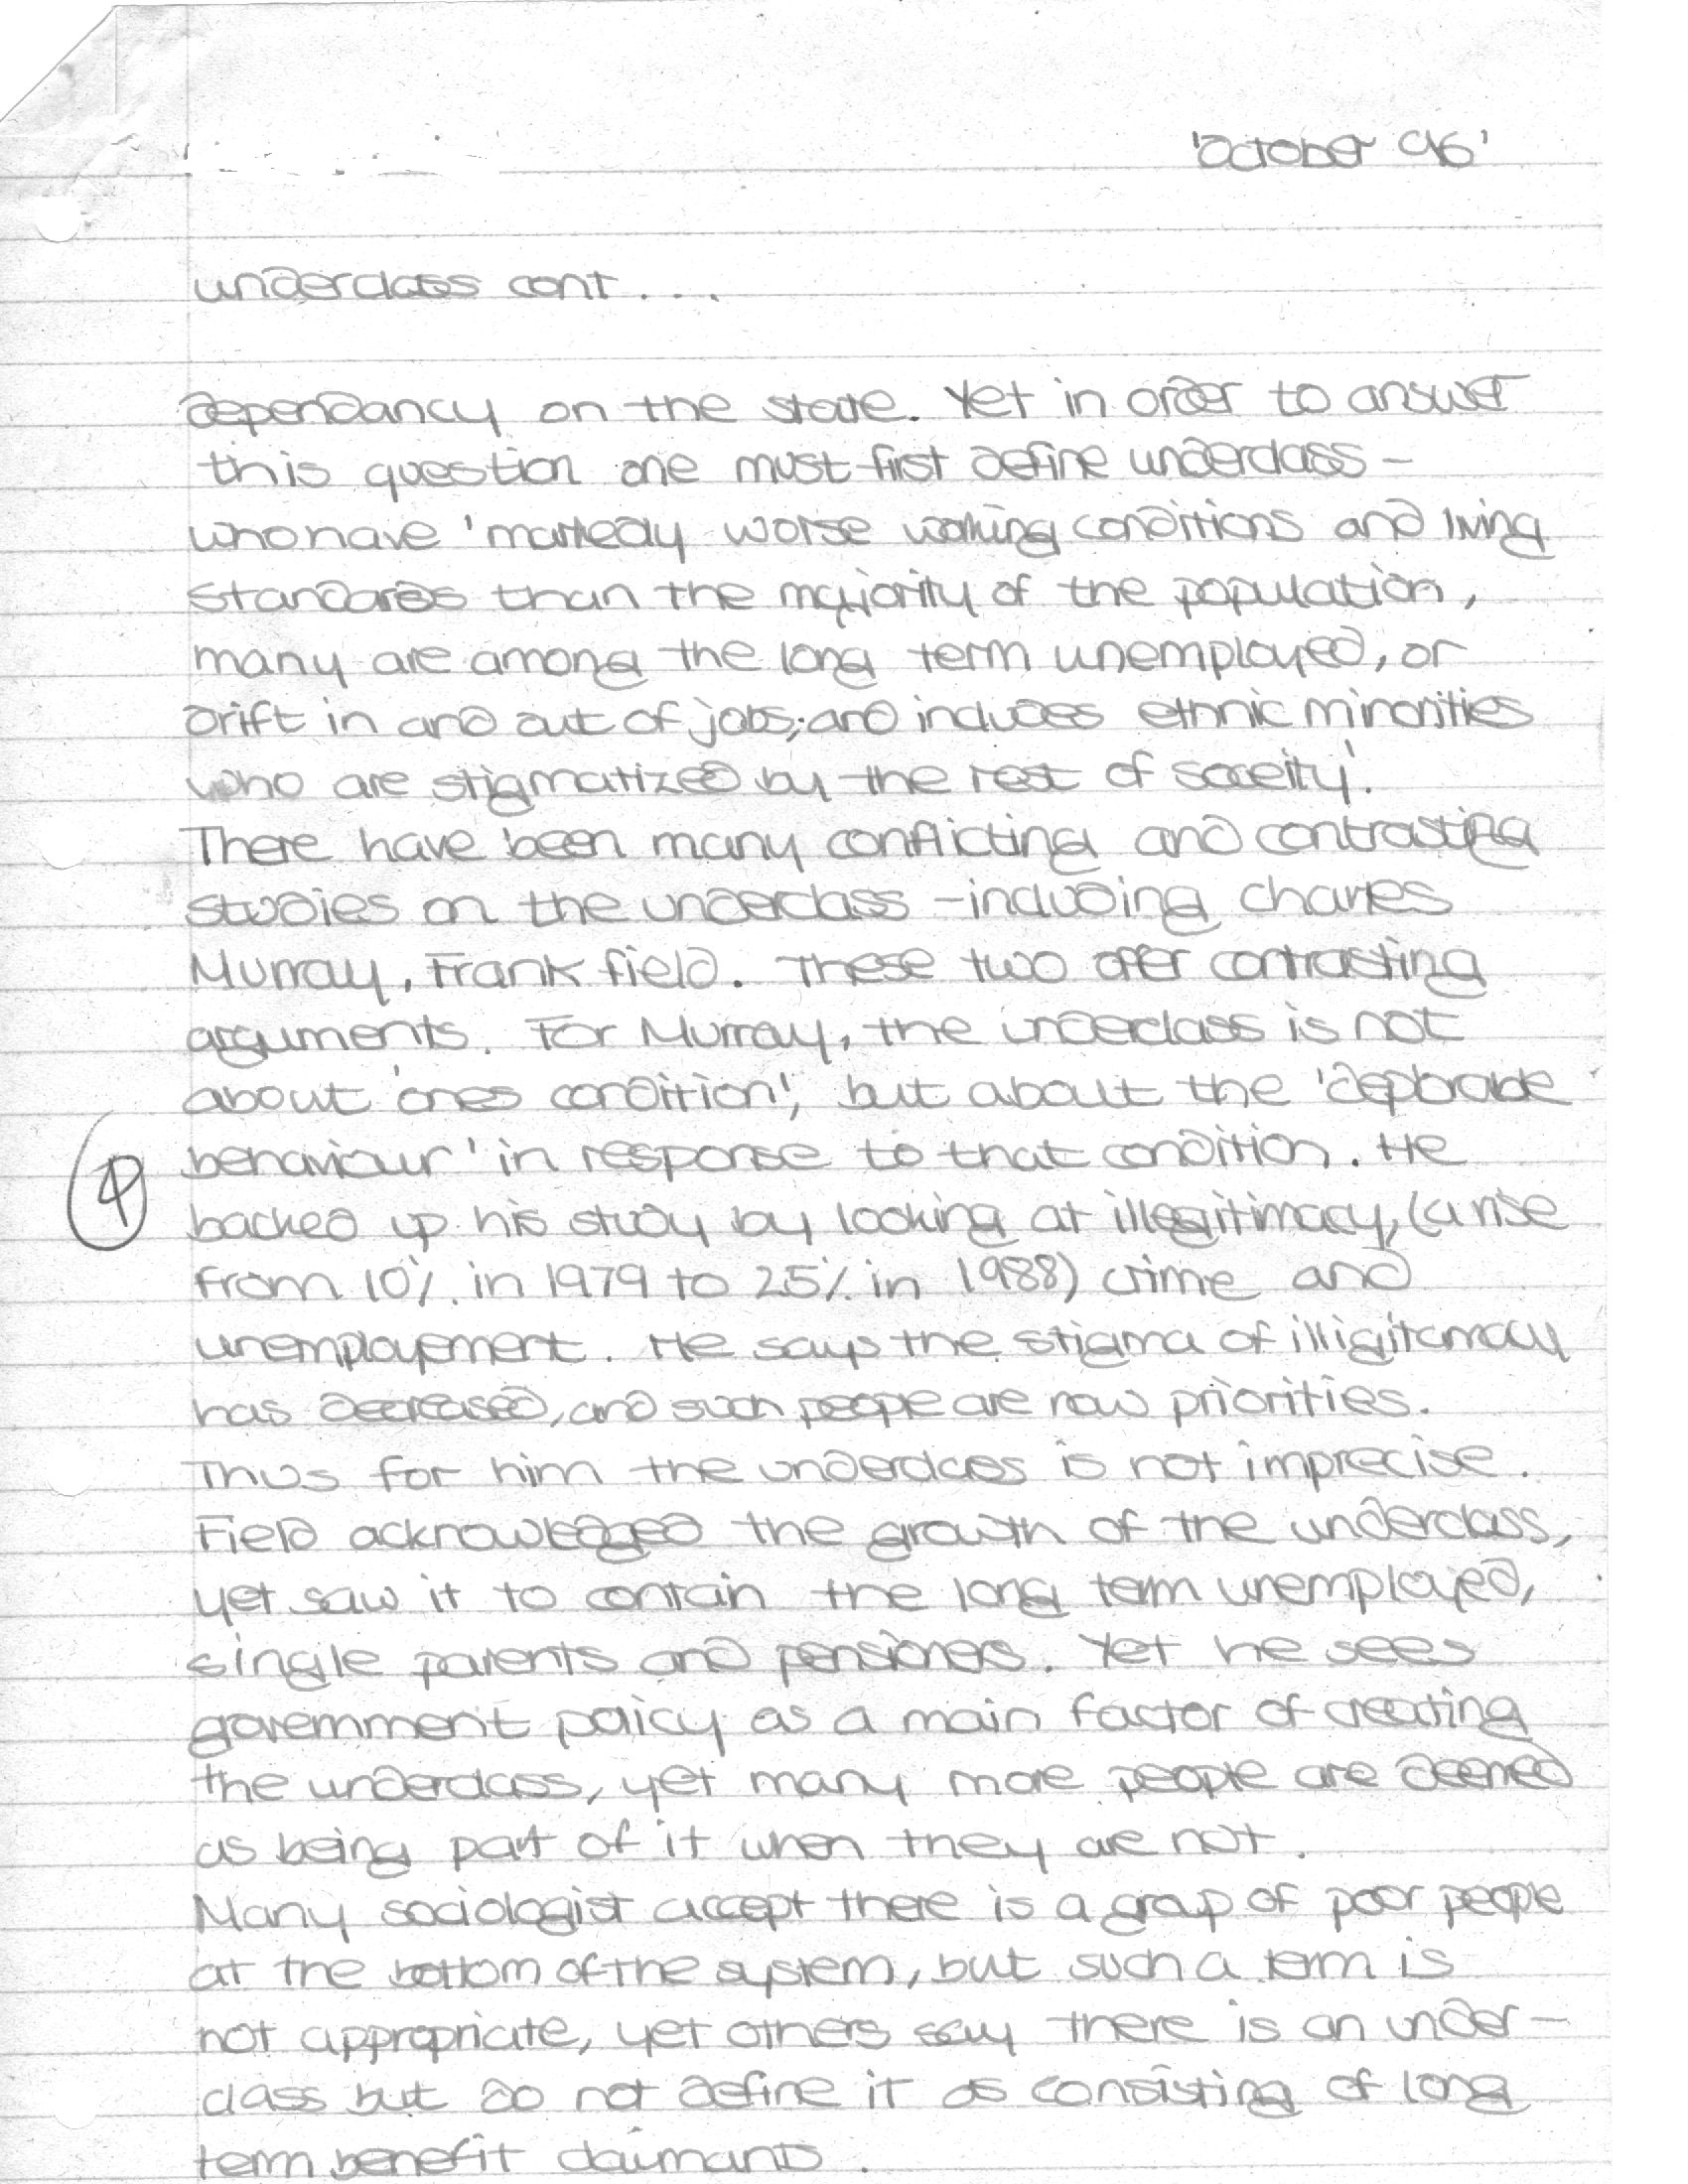 'October 96'
underclass cont....
dependancy on the state. Yet in order to answer
this question one must first define underclass -
who have 'markedly worse working conditions and living
standards than the majority of the population,
many are among the long term unemployed, or
drift in and out of jobs; and includes ethnic minorities
who are stigmatized by the rest of soceity'.
There have been many conflicting and contrasting
studies on the underclass - including Charles
Murray, Frank Field. These two offer contrasting
arguments. For Murray, the underclass is not
about 'ones condition', but about the 'deplorable
behaviour' in response to that condition. He
backed up his study by looking at illegitimacy, (a rise
from 10% in 1979 to 25% in 1988) crime and
unemployement. He says the stigma of illigitamacy
has decreased, and such people are now priorities.
Thus for him the underclass is not imprecise.
Field acknowledged the growth of the underclass,
yet saw it to contain the long term unemployed,
single parents and pensioners. Yet he sees
government policy as a main factor of creating
the underclass, yet many more people are deemed
as being part of it when they are not.
Many sociologist accept there is a group of poor people
at the bottom of the system, but such a term is
not appropriate, yet others say there is an under-
class but do not define it as consisting of long
term benefit claimants.